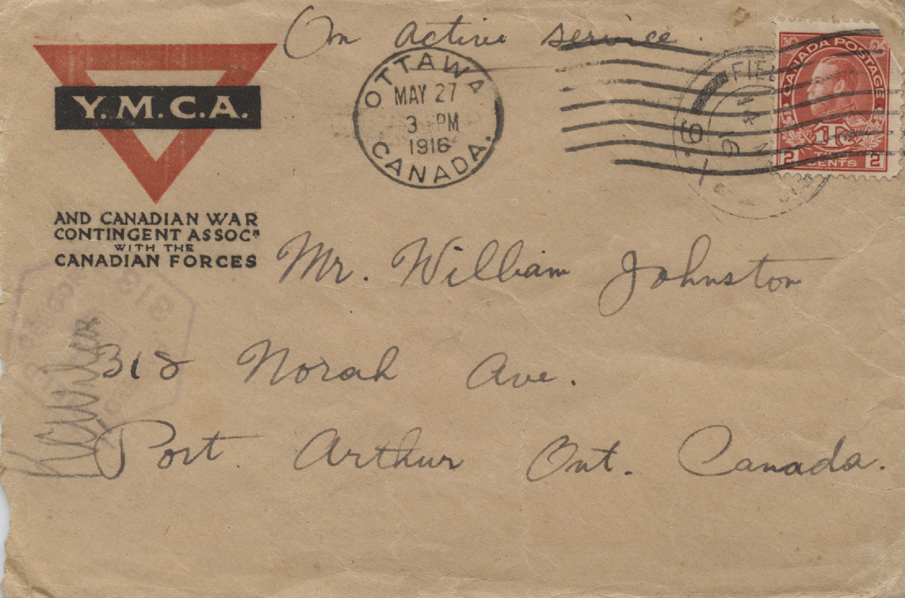 On active service.
Y.M.C.A.
AND CANADIAN WAR
CONTINGENT ASSOCⁿ
WITH THE
CANADIAN FORCES
OTTAWA
MAY 27
3 PM
1916
CANADA.
FIEL
16
CANADA POSTAGE
2 CENTS 2
Mr. William Johnston
318 Norah Ave.
Port Arthur Ont. Canada.